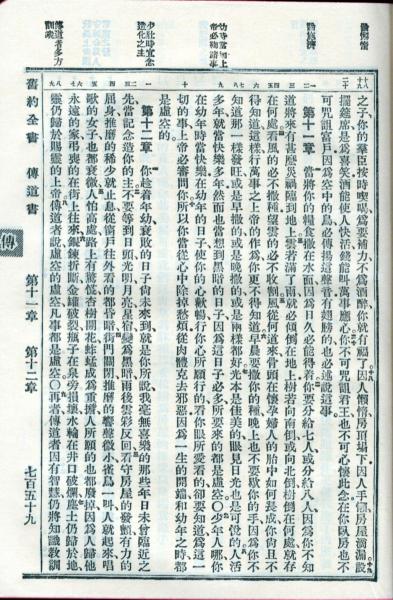 勸施濟
幼時當知上
帝必鞫諸事
少壯時宜念
造化之主
傳道者多方
訓誨
之子你的羣臣按時喫喝爲要補力不爲酒醉你就有福了因人懶惰房頂塌下因人手懶房屋滴漏設
擺筵席是爲喜笑酒能使人快活錢能叫萬事應心你不可咒詛君王也不可心懷此念在你臥房也不
可咒詛富戶因爲空中的鳥必傳揚這聲音有翅膀的也必述說這事
第十一章 當將你的糧食撒在水面因爲日久必能得着你要分給七人或分給八人因爲你不知
道將來有甚麼災禍臨到地上雲若滿了雨就必傾倒在地上樹若向南倒或向北倒樹倒在何處就存
在何處看風的必不撒種望雲的必不收割風從何道來骨頭在懷孕婦人的胎中如何長成你尚且不
得知道這樣行萬事之上帝的作爲你更不得知道早晨要撒你的種晚上也不要歇你的手因爲你不
知道那一樣發旺或是早撒的或是晚撒的或是兩樣都好光本是佳美的眼見日光也是可悅的人活
多年就當快樂多年然而也當想到黑暗的日子因爲這日子必多所要來的都是虛空○少年人哪你
在幼年時當快樂在幼年的日子使你的心歡暢行你心所願行的看你眼所愛看的卻要知道爲這一
切的事上帝必審問你所以你當從心中除掉愁煩從肉體克去邪惡因爲一生的開端和幼年之時都
是虛空的
第十二章 你趁着年幼衰敗的日子尚未來到就是你所說我毫無喜樂的那些年日未曾臨近之
先當記念造你的主不要等到日頭光明月亮星宿變爲黑暗雨後雲彩反回看守房屋的發顫有力的
屈身推磨的稀少就止息從窗戶往外看的都昏暗街門關閉推磨的響聲微小雀鳥一叫人就起來唱
歌的女子也都衰微人怕高處路上有驚慌杏樹開花蚱蜢成爲重擔人所願的也都廢掉因爲人歸他
永遠的家弔喪的在街上往來銀鍊折斷金罐破裂瓶子在泉旁損壞水輪在井口破爛塵土仍歸於地
靈仍歸於賜靈的上帝傳道者說虛空的虛空凡事都是虛空○再者傳道者因有智慧仍將知識教訓
舊約全書 傳道書 第十一章 第十二章 七百五十九
傳